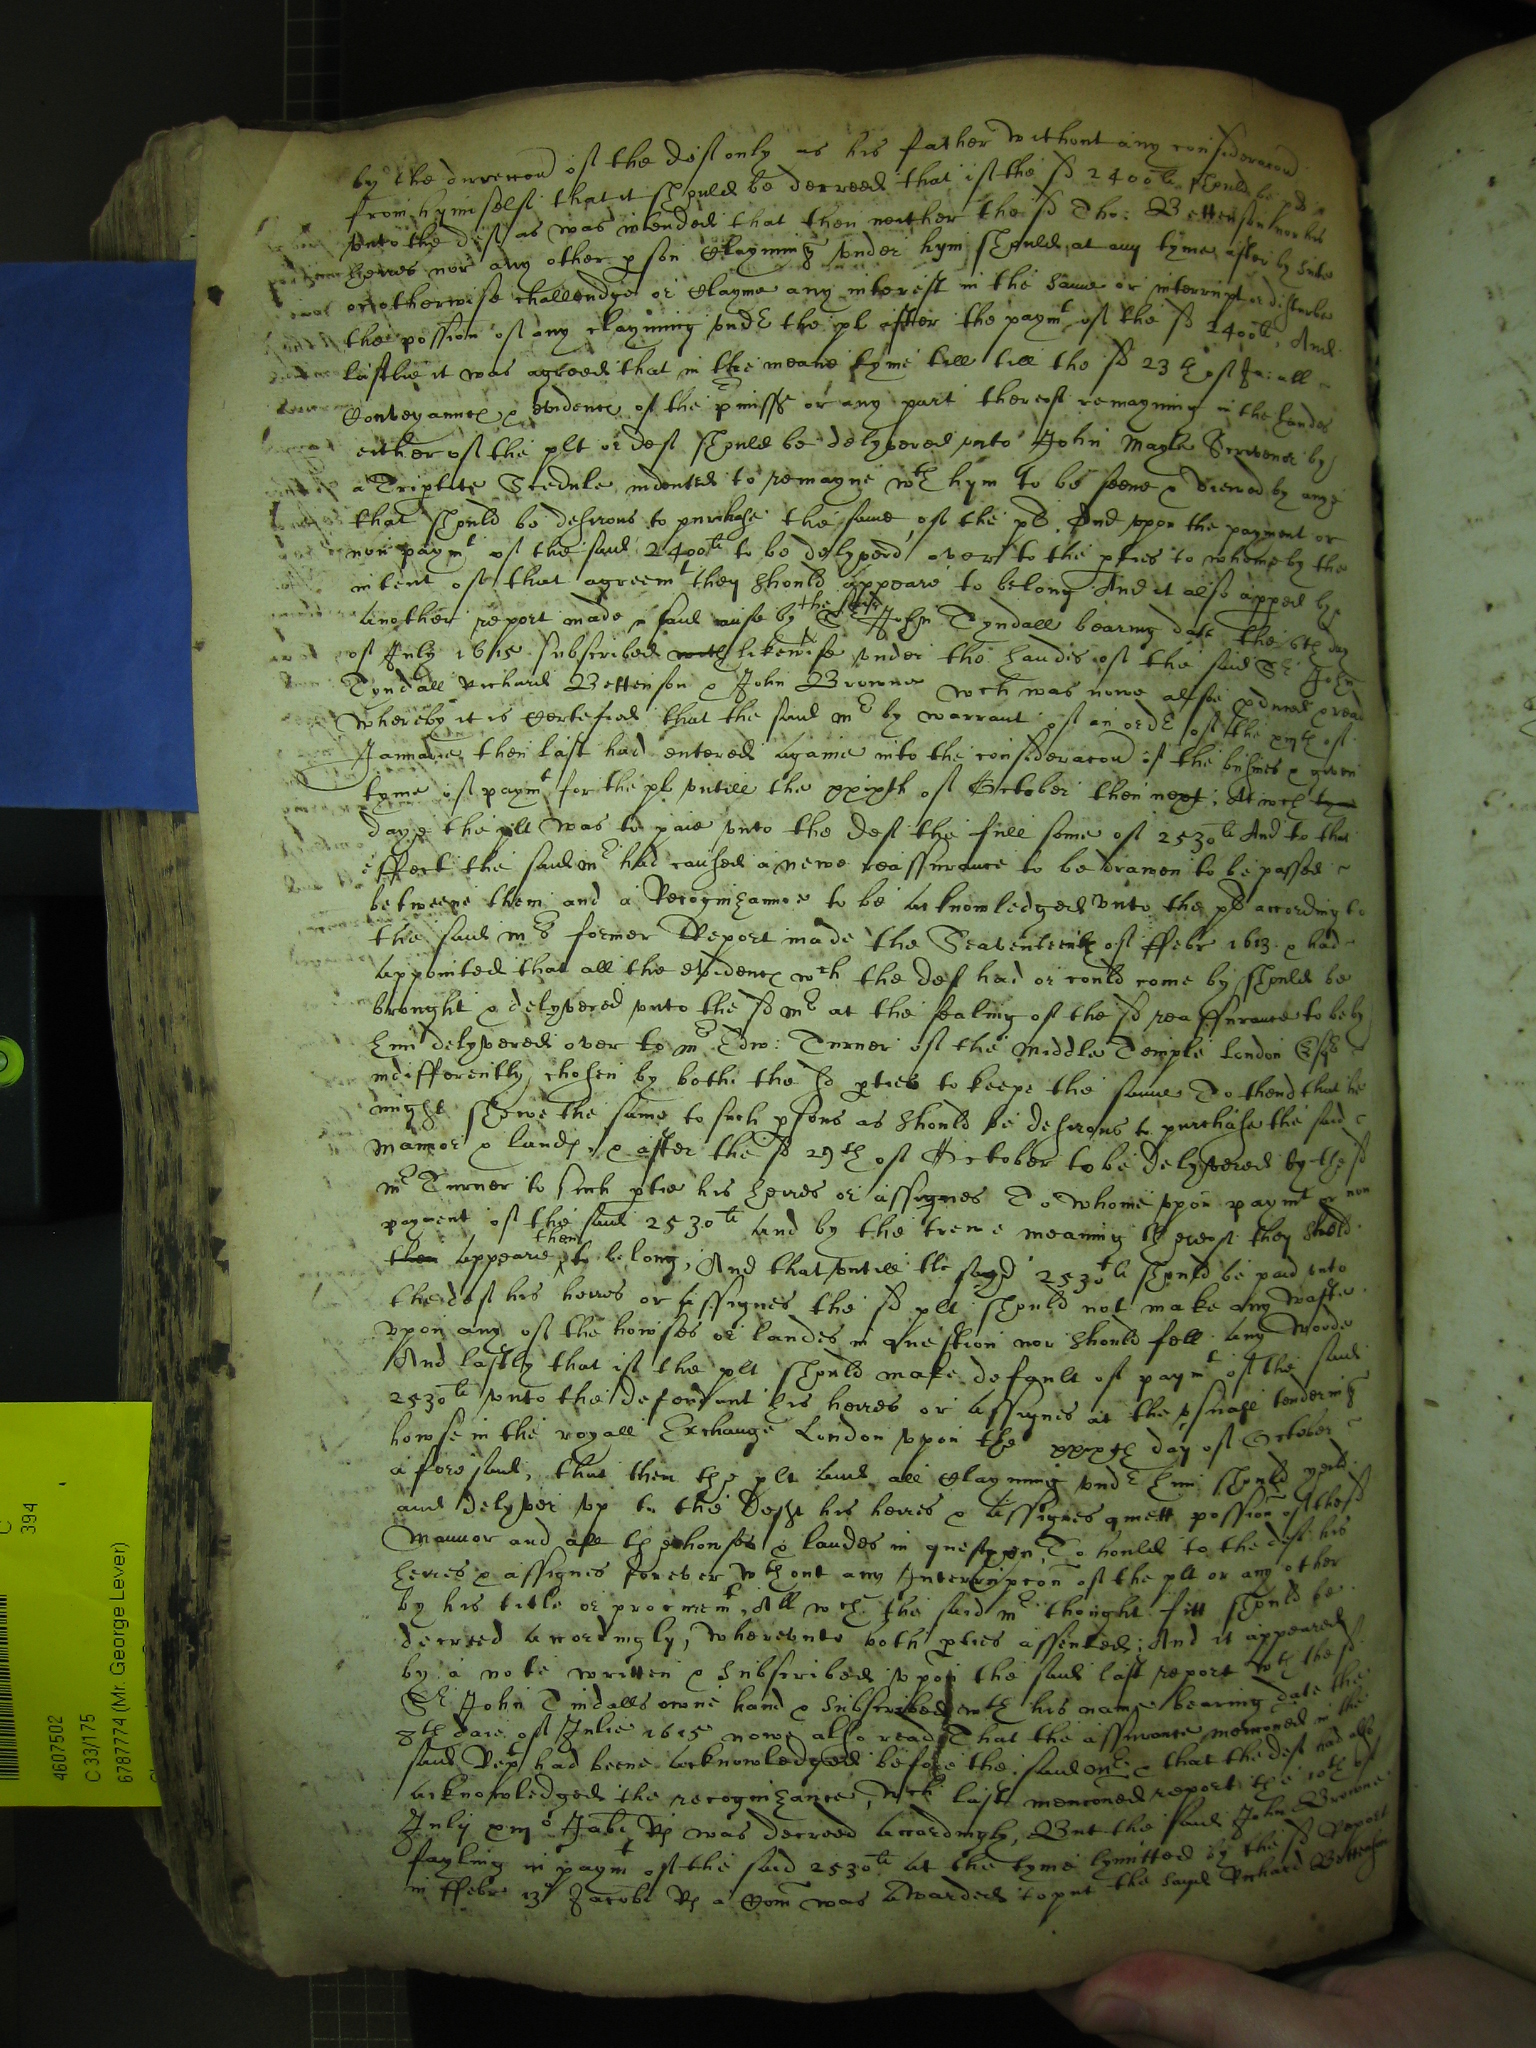 by the direccon of the deft only as his father without any consideracon
from hymselfe that it should be decreed that if the sd 2400li should be pd
unto the deft as was intended that then neither the sd Tho: Bettenson nor his
heires nor any other pson Clayming under hym should at any tyme after by suite
or otherwise challendge or Clayme any interest in the same or interrupt or disturbe
the possion of any clayming undr the pl after the paymt of the sd 2400li, And
lastlie it was agreed that in the meane tyme till till the sd 23th of all
Conveyances & evidences of the pmisses or any part thereof remayning in the handes
either of the plt or deft should be delyvered unto John Mayle Scrivener by
a Triptite Scedule indented to remayne wth hym to be seene & viewed by anye
that should be desirous to purchase the same of the pl And uppon the payment or
non paymt of the said 2400li to be delyverd over to the pties to whome by the
intent of that agreemt they should appeare to belong And it also apped by
Another report made in said cause by the said Sr John Tyndall bearing date the 6th day
of July 1615 subscribed with likewise under the handes of the said Sr John
Tyndall Richard Bettenson & John Browne wch was nowe alsoe pduced & read
whereby it is Certefied that the said mr by warrant of an ordr of the xiijth of
Januarie then last had entered againe into the consideracon of the busines & given
tyme of paymt for the pl untill the xxixth of October then next, At wch tyme
daye the plt was to paie unto the deft the full some of 2530li And to that
effect the said mr had caused a newe reassurance to be drawen to be passed
betweene them and a Recognizance to be acknowledged unto the pl according to
the said mrs former Report made the Seaventeenth of ffebr 1613 & had
appointed that all the evidences wch the deft had or could come by should be
brought & delyvered unto the sd mr at the sealing of the sd reassurance to be by
him delyvered over to mr Edw: Turner of the Middle Temple London Esqr
indifferently chosen by bothe the sd pties to keepe the same To thend that he
might shewe the same to such psons as should be desirous to purchase the said
mannor & landes, & after the sd 29th of October to be delyvered by the sd
mr Turner to such ptie his heires or assignes To whome upon paymt or non
payment of the said 2530li and by the trewe meaning thereof they shold
then appeare then to belong, And that untill the sayd 2530li should be paid unto
the deft his heires or Assignes the sd plt should not make any waste
upon any of the howses or landes in question nor should fell any woode
And lastly that if the plt should make default of paymt of the said
2530li unto the defendant his heires or Assignes at the usuall tendering
howse in the royall Exchange London upon the xxixth day of October
aforesaid, that then the plt and all Clayming undr him should yeild
and delyver up to the Deft his heires & Assignes quiett possion of the sd
Mannor and all the howses & landes in question, To hould to the deft his
heires & assignes forever wthout any Interrupcon of the plt or any other
by his title or procuremt, All wch the said mr thought fitt should be
decreed accordingly, whereunto both pties assented; And it appeared
by a note written & subscribed upon the said last report wth the sd
Sr John Tindalls owne hand & subscribed with his name bearing date the
8th daie of Julie 1615 nowe also read That the assurance mencioned in the
said Rept had beene acknowledged before the said mr & that the deft had also
acknowledged the recognizance, wch last mencioned report the 10th of
July xiijo Jabi Rs was decreed accordingly, But the said John Browne
fayling in paymt of the said 2530li at the tyme lymitted by the sd Report
in ffebr 13o Jacobi Rs a Com was awarded to put the sayd Richard Bettenson
4607502
C 33/175
6787774 (Mr. George Lever)
C
394